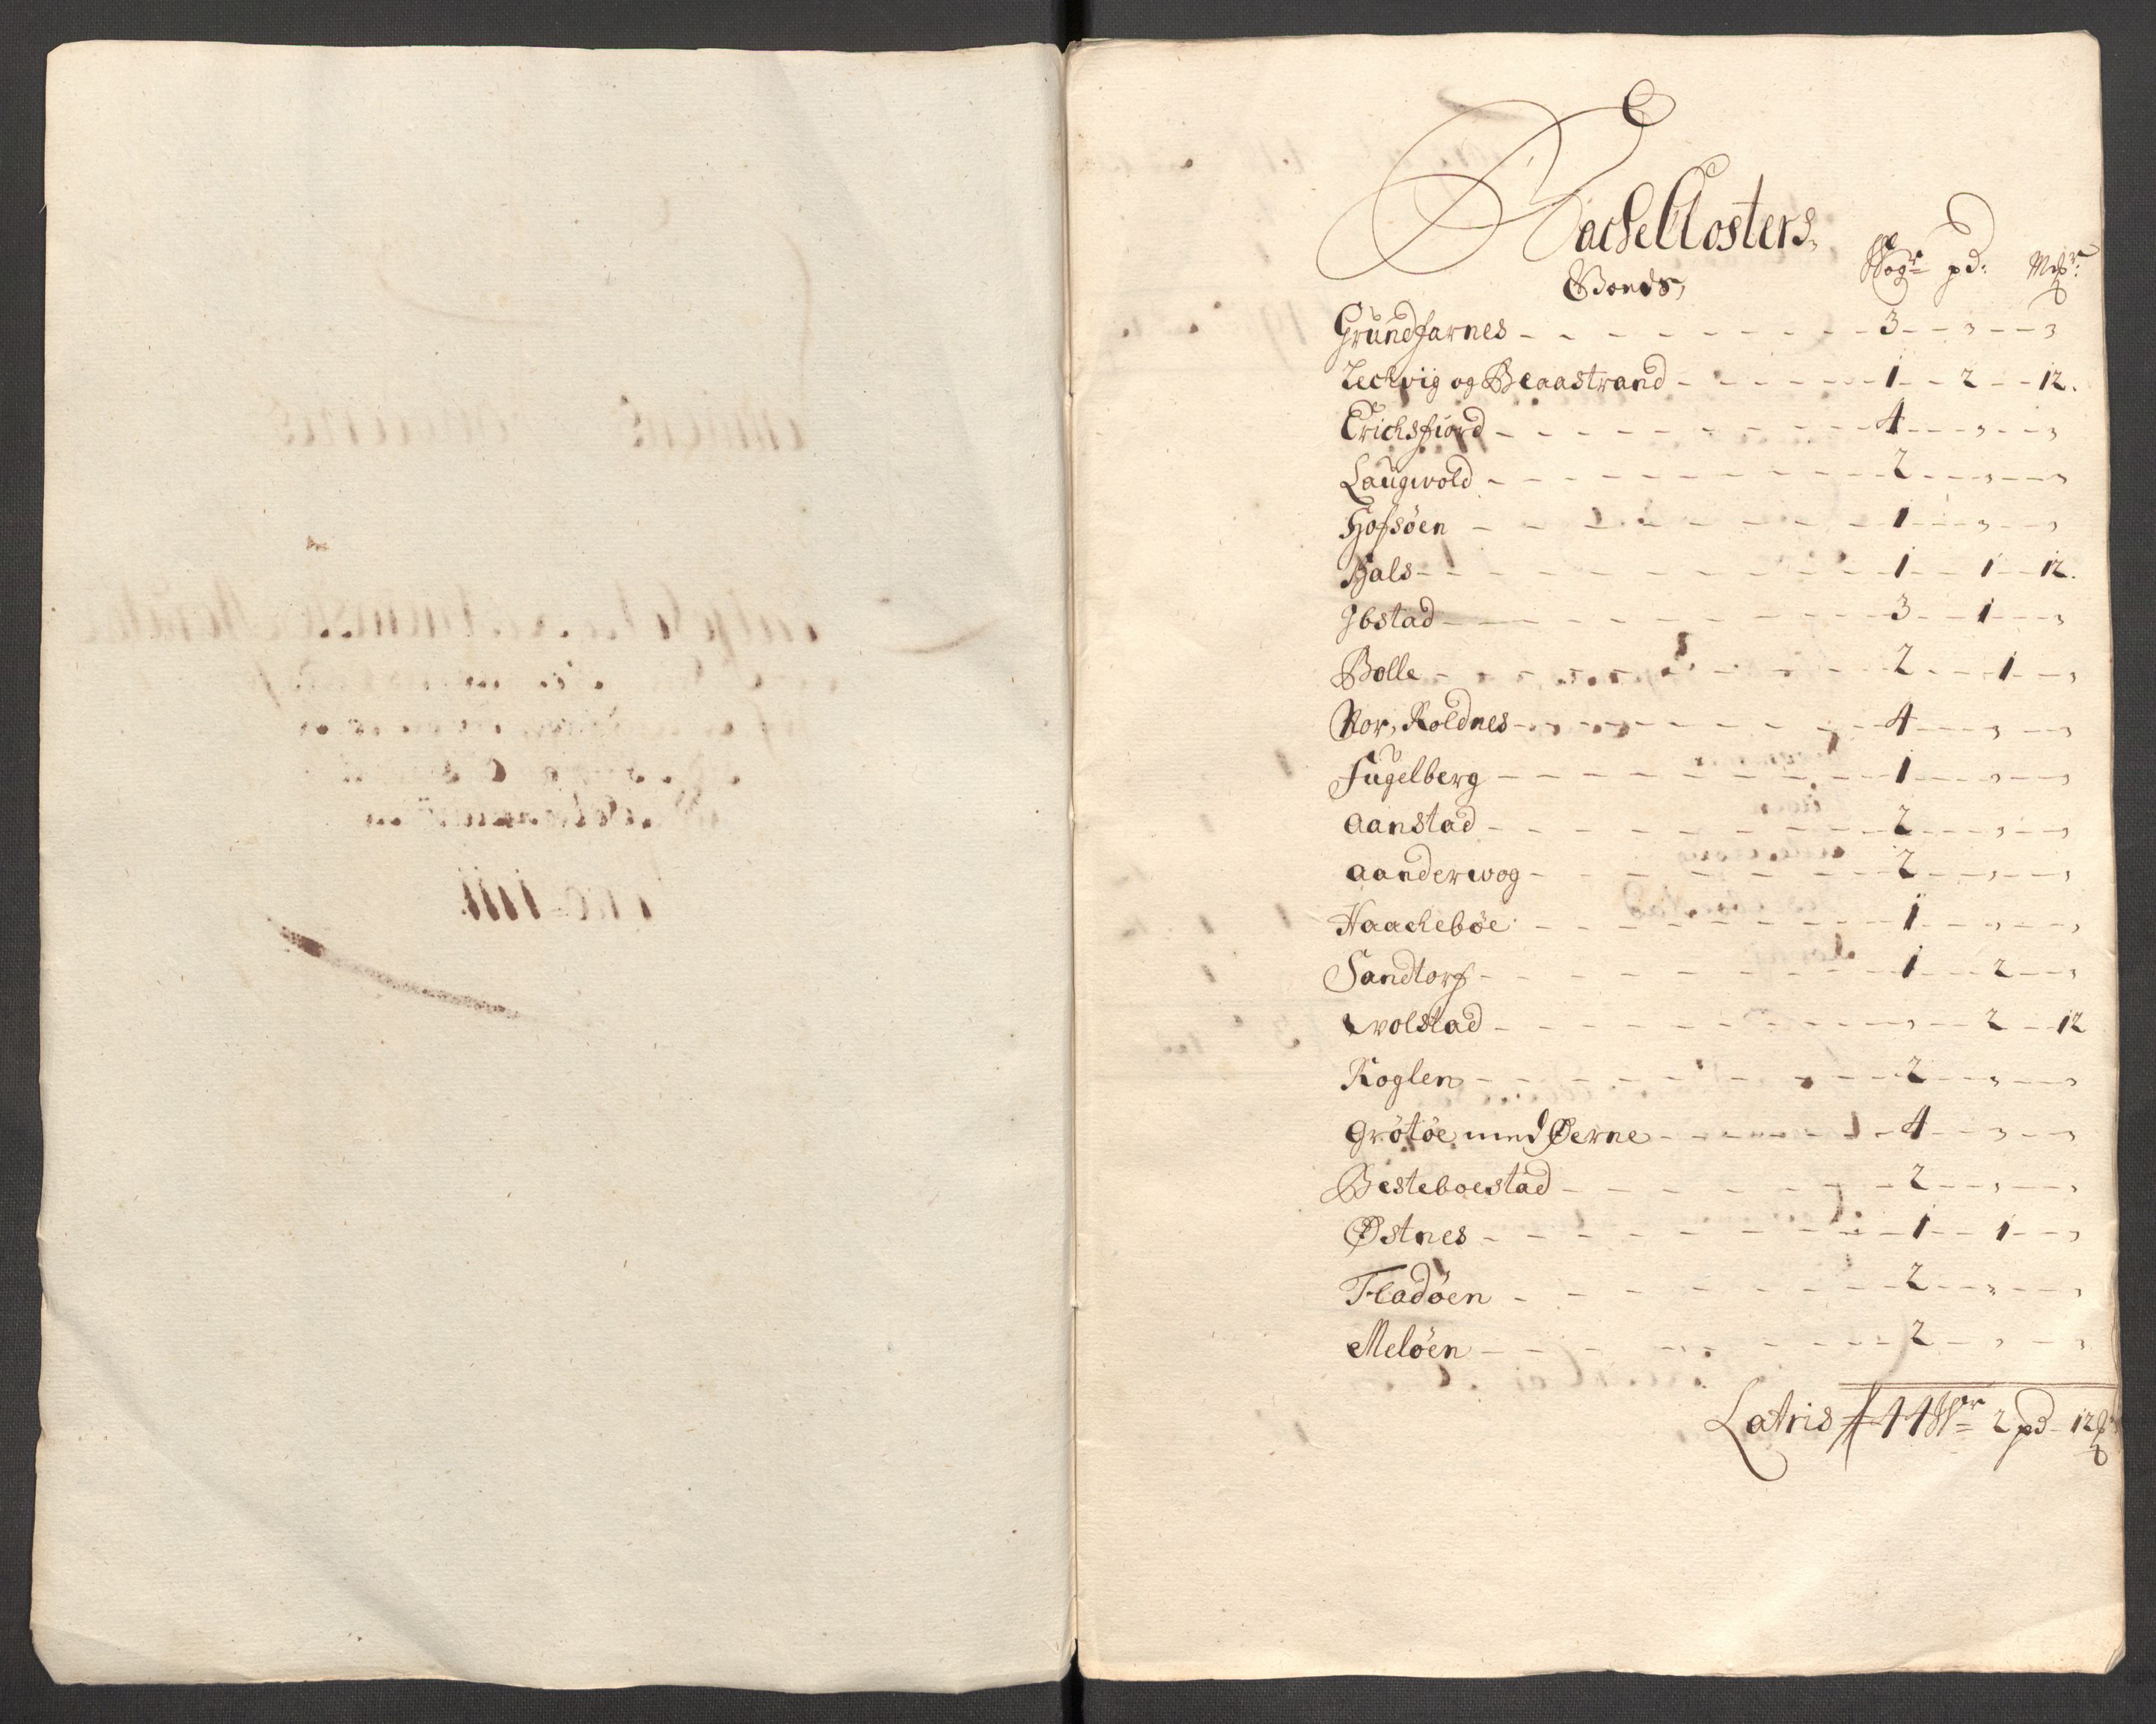 BacheClosters,
Bonds,
Wogr pd: Mkr:
Grundfarnes - - - - - - - - 3 - - , - - ,
Lechvig og Beaastrand - - - - - 1 - - 2 - - 12.
Erichsfiord - - - - - - - - 4 - - - , - - ,
Laugwold - - - - - - - - 2 - - - , - - ,
Hofsøen - - - - - - - - 1 - - , - - ,
Hals - - - - - - - - - 1 - - 1 - - 12.
Ibstad - - - - - - - - 3 - - 1 - - ,
Bolle - - - - - - - - 2 - - - 1 - - ,
Nor, Roldnes - - - - - - - 4 - - - , - - ,
Fugelberg - - - - - - - - 1 - - - , - - ,
Aanstad - - - - - - - - 2 - - - , - - ,
Aanderwog - - - - - - - 2 - - - , - - ,
Haachebøe - - - - - - - 1 - - - , - - ,
Sandtorf - - - - - - - - 1 - - 2 - - ,
Evolstad - - - - - - - - , - - 2 - - 12
Koglen - - - - - - - - 2 - - , - - ,
Grøtøe med Øerne - - - - - 4 - - - , - - ,
Besteboestad - - - - - - - 2 - - , - - ,
Østnes - - - - - - - - 1 - - 1 - - ,
Fladøen - - - - - - - - 2 - - , - - ,
Meløen - - - - - - - - 2 - - , - - ,
Latris 44 Wr 2 pd - 12